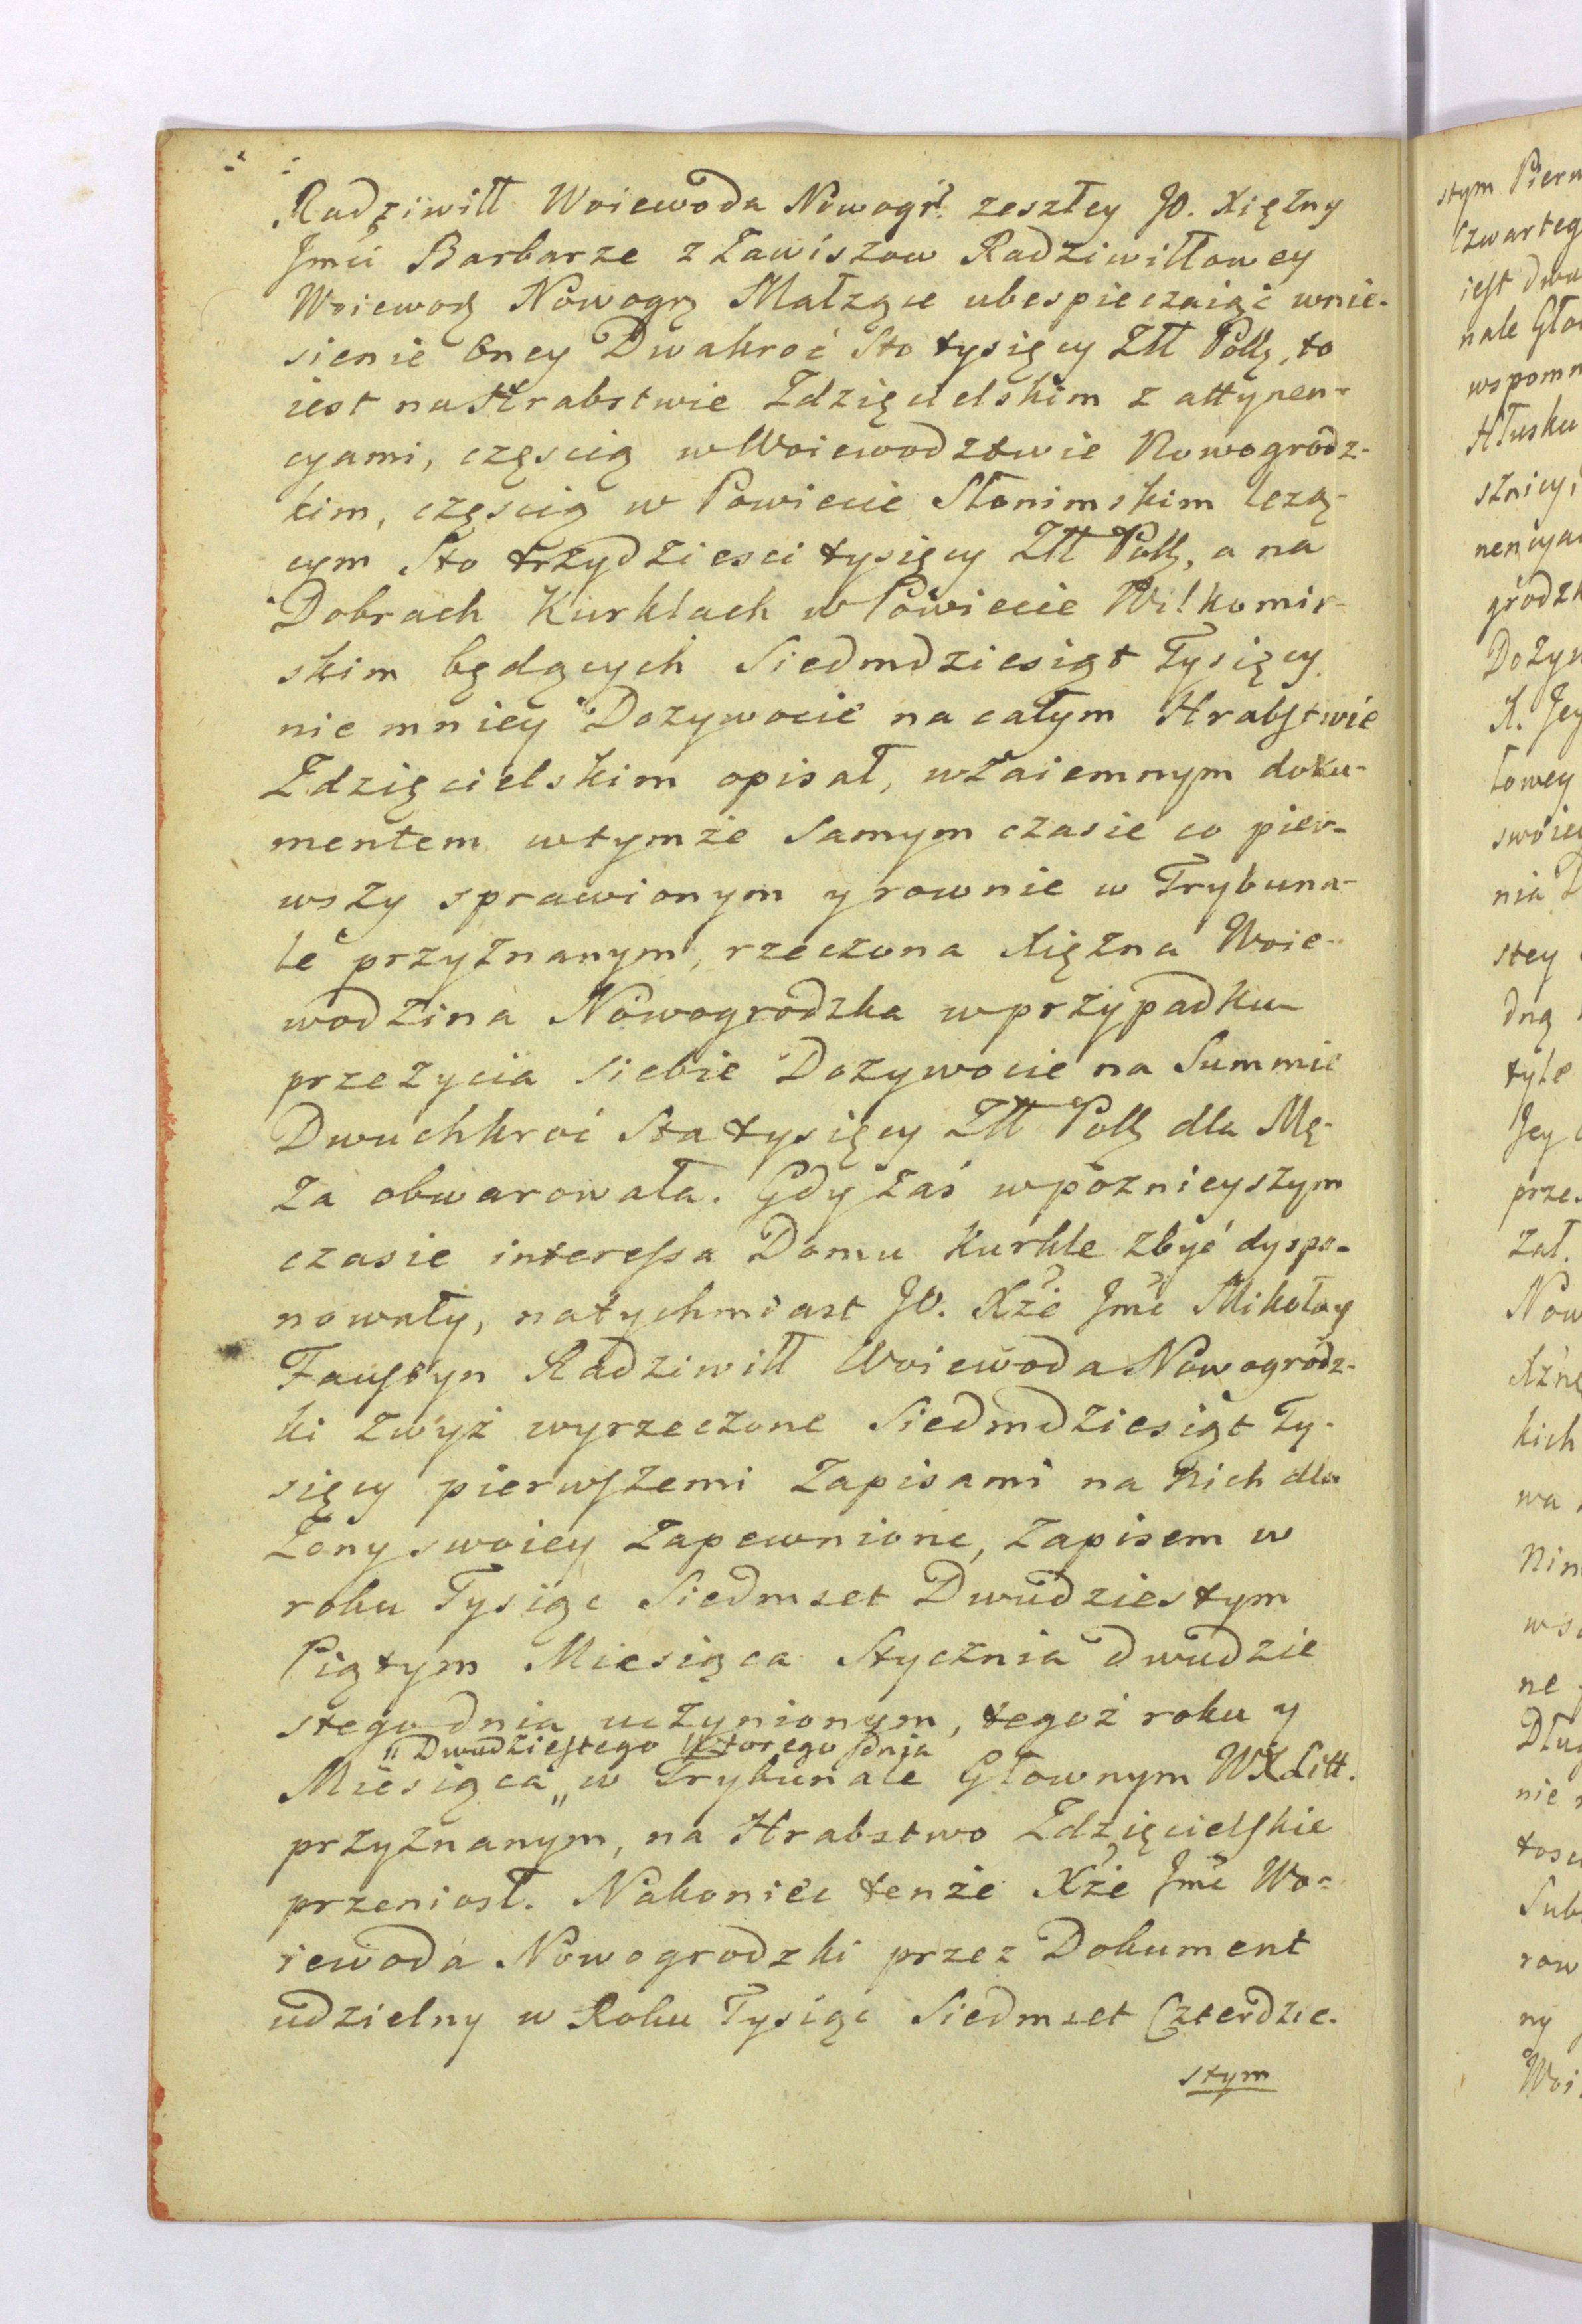 Radziwiłł Woiewoda Nowogr. zeszłey JO. Xiężny
Jmci Barbarze z Zawiszow Radziwiłłowey
Woiewodz Nowogrz Małząe ubespieczaiąc wnie-
sienie Oney Dwakroć Sto tysięcy Złł Pollz, to
iest na Hrabstwie Zdzięcielskim z attynen-
cyami, częscią w Woiewodztwie Nowogrodz-
kim, częscią w Powiecie Słonimskim leżą-
cym Sto trzydziesci tysięcy Złł Pollz, a na
Dobrach Kurklach w Powiecie Wiłkomir-
skim będących Siedmdziesiąt Tysięcy
nie mniey Dożywocie na całym Hrabstwie
Zdzięcielskim opisał, wzaiemnym doku-
mentem w tymże samym czasie co pier-
wszy sprawionym y rownie w Trybuna-
le przyznanym, rzeczona Xiężna Woie-
wodzina Nowogrodzka w przypadku
przeżycia siebie Dożywocie na Summie
Dwuchkroć Sta tysięcy Złł Pollz dla Mę-
ża obwarowała. Gdy zaś w poznieyszym
czasie interessa Domu Kurkle zbyć dyspo-
nowały, natychmiast JO. Xże Jmć Mikołay
Faustyn Radziwiłł Woiewoda Nowogródz-
ki zwyż wyrzeczone Siedmdziesiąt Ty-
sięcy pierwszemi Zapisami na nich dla
Żony swoiey Zapewnione, Zapisem w
roku Tysiąc Siedmset Dwudziestym
Piątym Miesiąca Stycznia dwudzie
stego dnia uczynionym, tegoż roku y
" Dwudziestego Wtorego dnia
Miesiąca „ w Trybunale Głownym WXLitt.
przyznanym, na Hrabstwo Zdzięcielskie
przeniosł. Nakoniec tenże Xże Jmć Wo-
iewoda Nowogrodzki przez Dokument
udzielny w Roku Tysiąc Siedmset Czterdzie-
stym
stym Pierw
Czwarteg
iest dwa
nale Gło
wspomn
Hłusku
sznicy,
nencya
gródzk
Dożyw
X. Jey
łowey
swoie
nia D
stey
dną
tyle
Jey
prze
zał.
Now
Xżnę
kich
wa
Nin
ws
ne
Dług
nie
tosc
Sub
row
ny
Woi